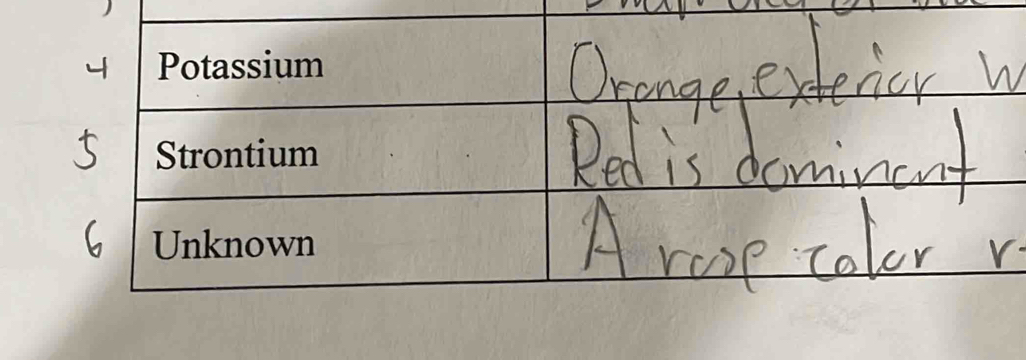 4 Potassium Orange, exterior w
5 Strontium Red is dominant
6 Unknown A rose color r